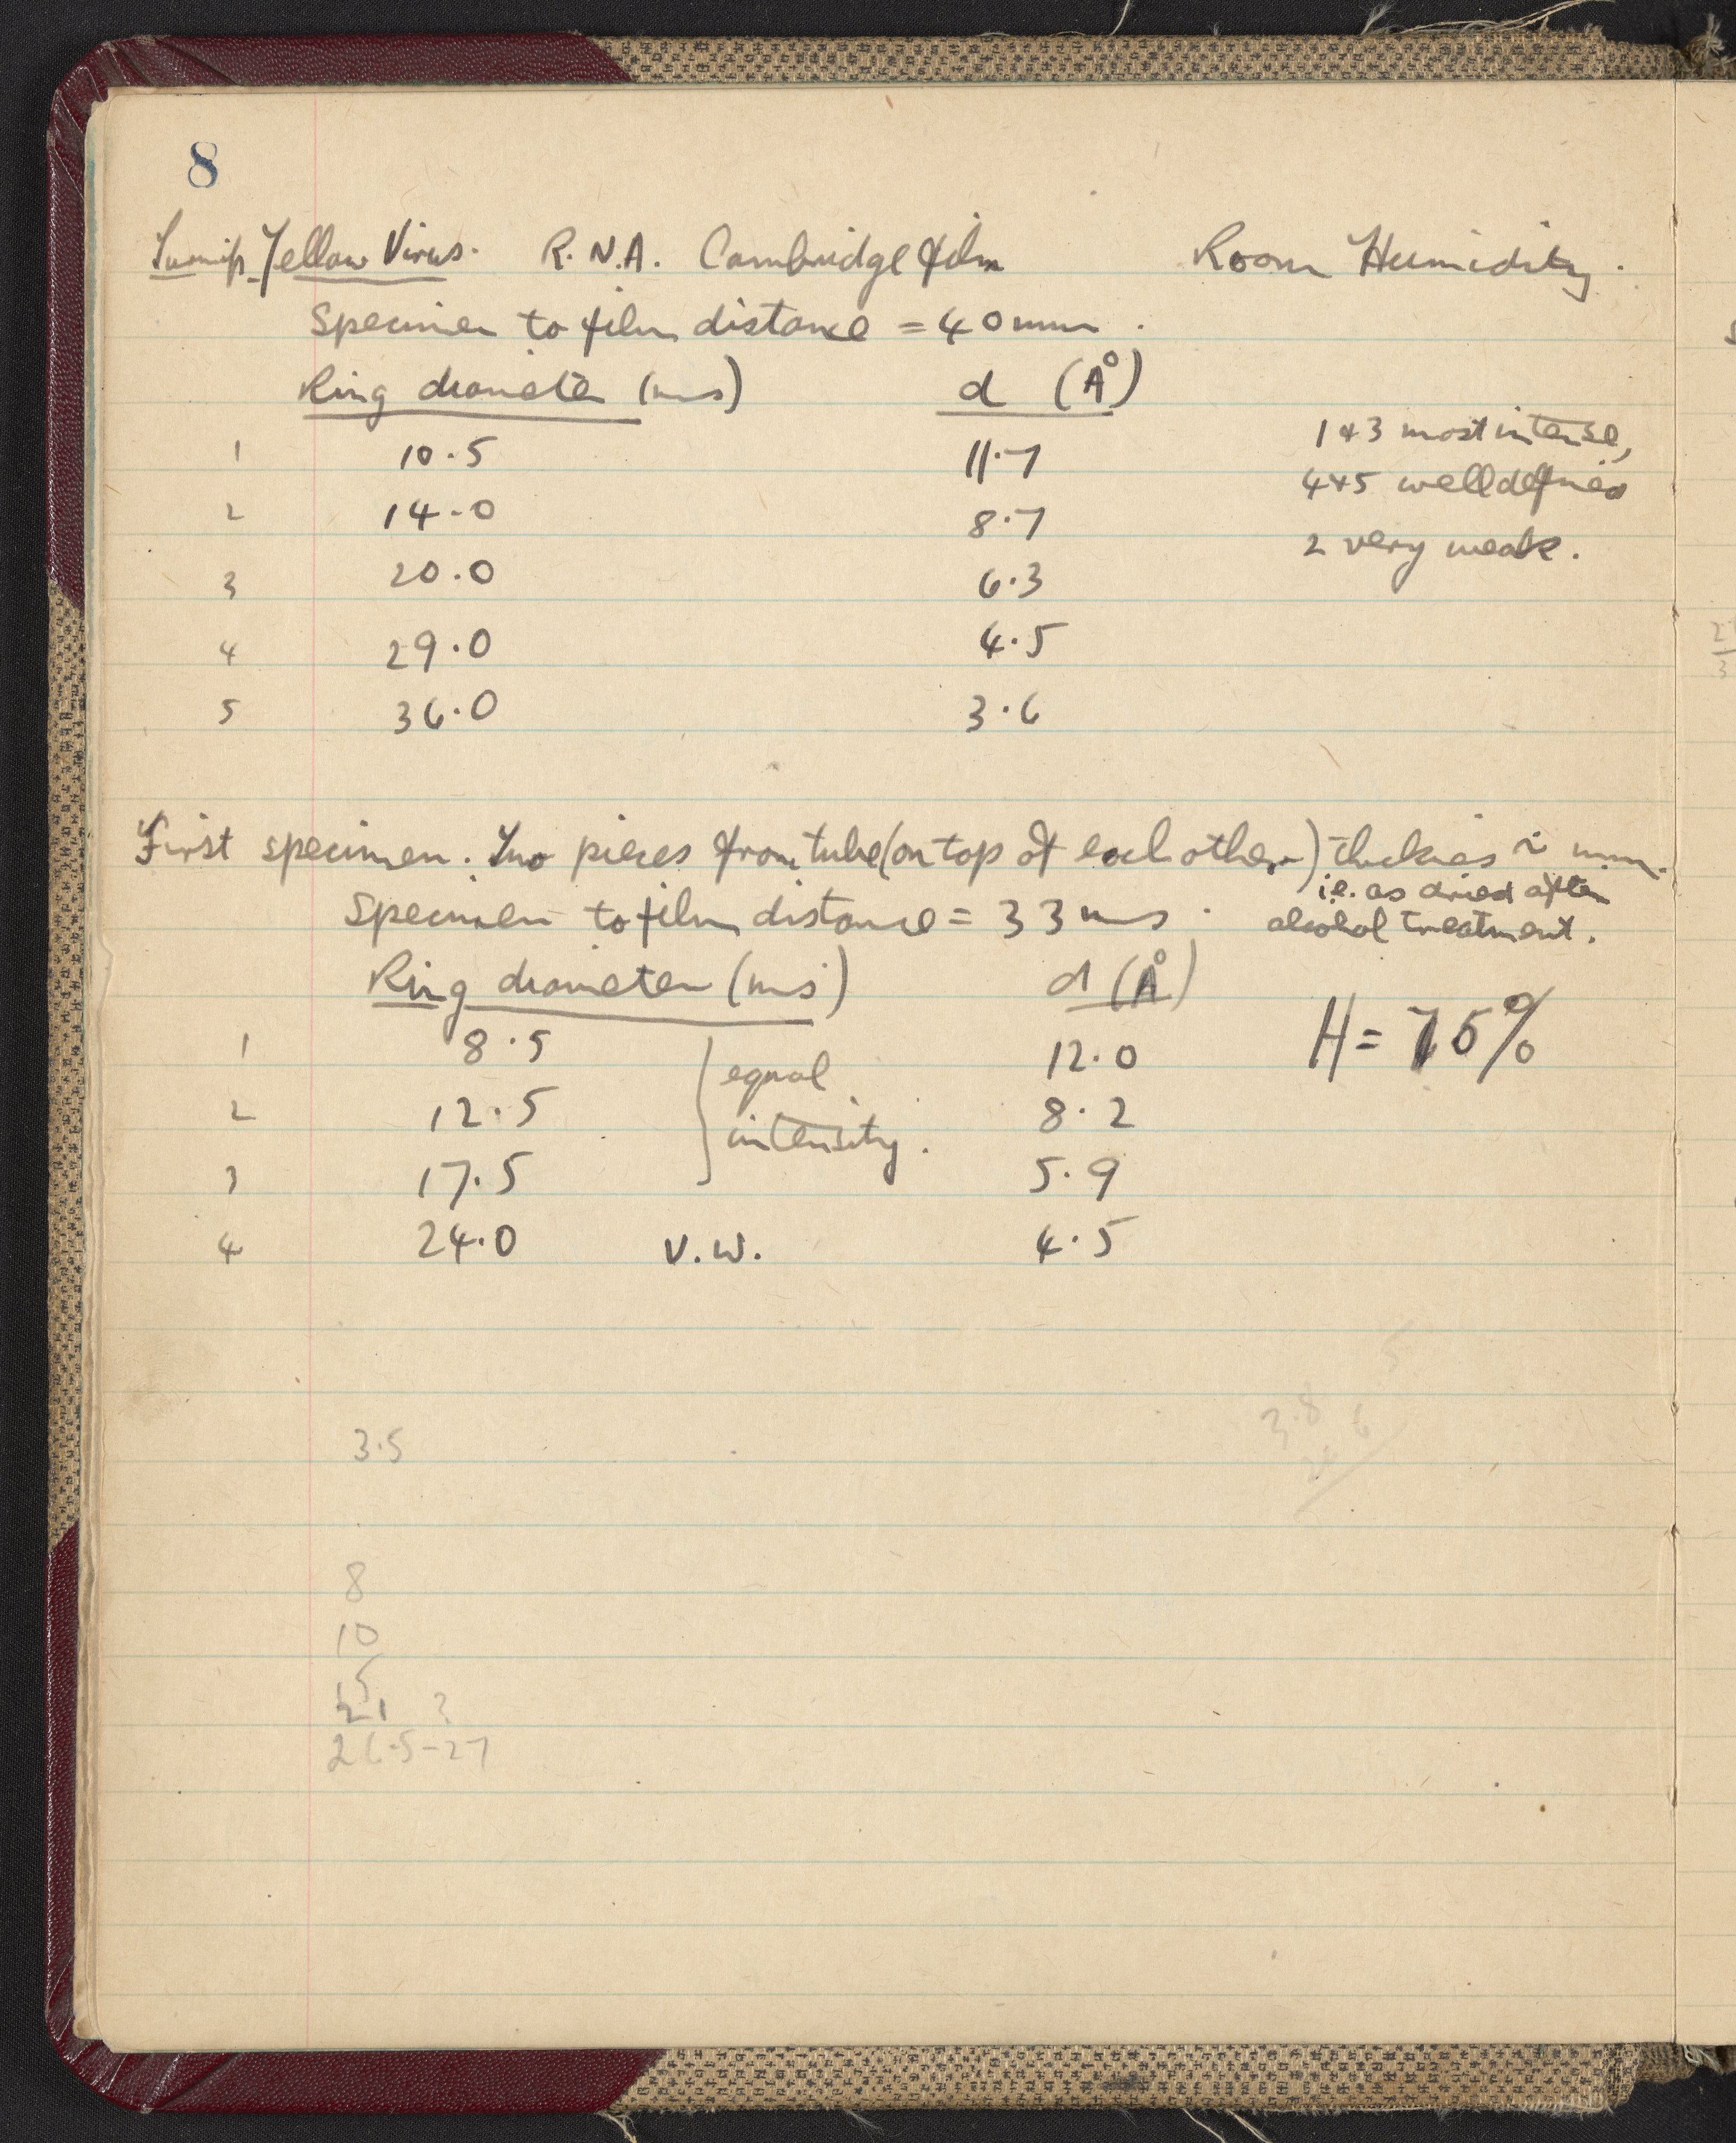 8
Turnip Yellow Virus. R.N.A. Cambridge film Room Humidity.
Specimen to film distance = 40 mm.
Ring diameter (ms) d (Å)
1 10.5 11.7 1 & 3 most intense,
2 14.0 8.7 4 & 5 well defined
3 20.0 6.3 2 very weak.
4 29.0 4.5
5 36.0 3.6
First specimen. Two pieces from tube (on top of each other) thickness mm.
i.e. as dried after
Specimen to film distance = 33 ms. alcohol treatment.
Ring diameter (ms) d (Å)
1 8.5 12.0 H = 75%
2 12.5 equal intensity. 8.2
3 17.5 5.9
4 24.0 V.W. 4.5
3.8 6
3.5
8
10
15
21 ?
26.5-27